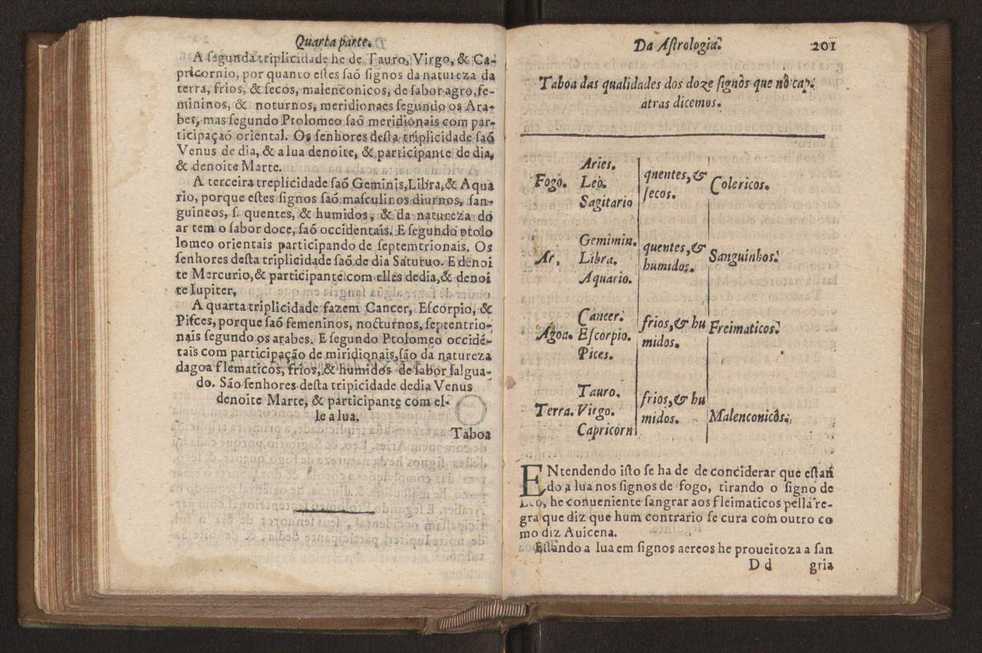 Quarta parte.
A segunda triplicidade he de Tauro, Virgo, & Ca-
pricornio, por quanto estes saõ signos da natureza da
terra, frios, & secos, malenconicos, de sabor agro, fe-
mininos, & noturnos, meridionaes segundo os Ara-
bes, mas segundo Ptolomeo saõ meridionais com par-
ticipaçaõ oriental. Os senhores desta triplicidade saõ
Venus de dia, & a lua denoite, & participante de dia,
& denoite Marte.
A terceira treplicidade saõ Geminis, Libra, & Aqua
rio, porque estes signos saõ masculinos diurnos, san-
guineos, s. quentes, & humidos, & da natureza do
ar tem o sabor doce, saõ occidentais. E segundo ptolo
lomeo orientais participando de septemtrionais. Os
senhores desta triplicidade saõ de dia Saturno. E denoi
te Mercurio, & participante com elles dedia, & denoi
te Iupiter.
A quarta triplicidade fazem Cancer, Escorpio, &
Pisces, porque saõ femeninos, nocturnos, septentrio-
nais segundo os arabes. E segundo Ptolomeo occidẽ-
tais com participação de miridionais, são da natureza
dagoa flematicos, frios, & humidos de sabor salgua-
do. São senhores desta tripicidade dedia Venus
denoite Marte, & participante com el-
le a lua.
Taboa
Da Astrologia. 201
Taboa das qualidades dos doze signos que nô capi
atras dicemos.
Fogo. Aries. Leo. Sagitario quentes, & secos. Colericos.
Ar. Gemimin. Libra. Aquario. quentes, & humidos. Sanguinhos.
Agoa. Cancer. Escorpio. Pices. frios, & hu midos. Freimaticos.
Terra. Tauro. Virgo. Capricorn frios, & hu midos. Malenconicôs.
ENtendendo isto se ha de de conciderar que estan
do a lua nos signos de fogo, tirando o signo de
Leo, he conueniente sangrar aos fleimaticos pella re-
gra que diz que hum contrario se cura com outro co
mo diz Auicena.
Estando a lua em signos aereos he proueitoza a san
D d gria